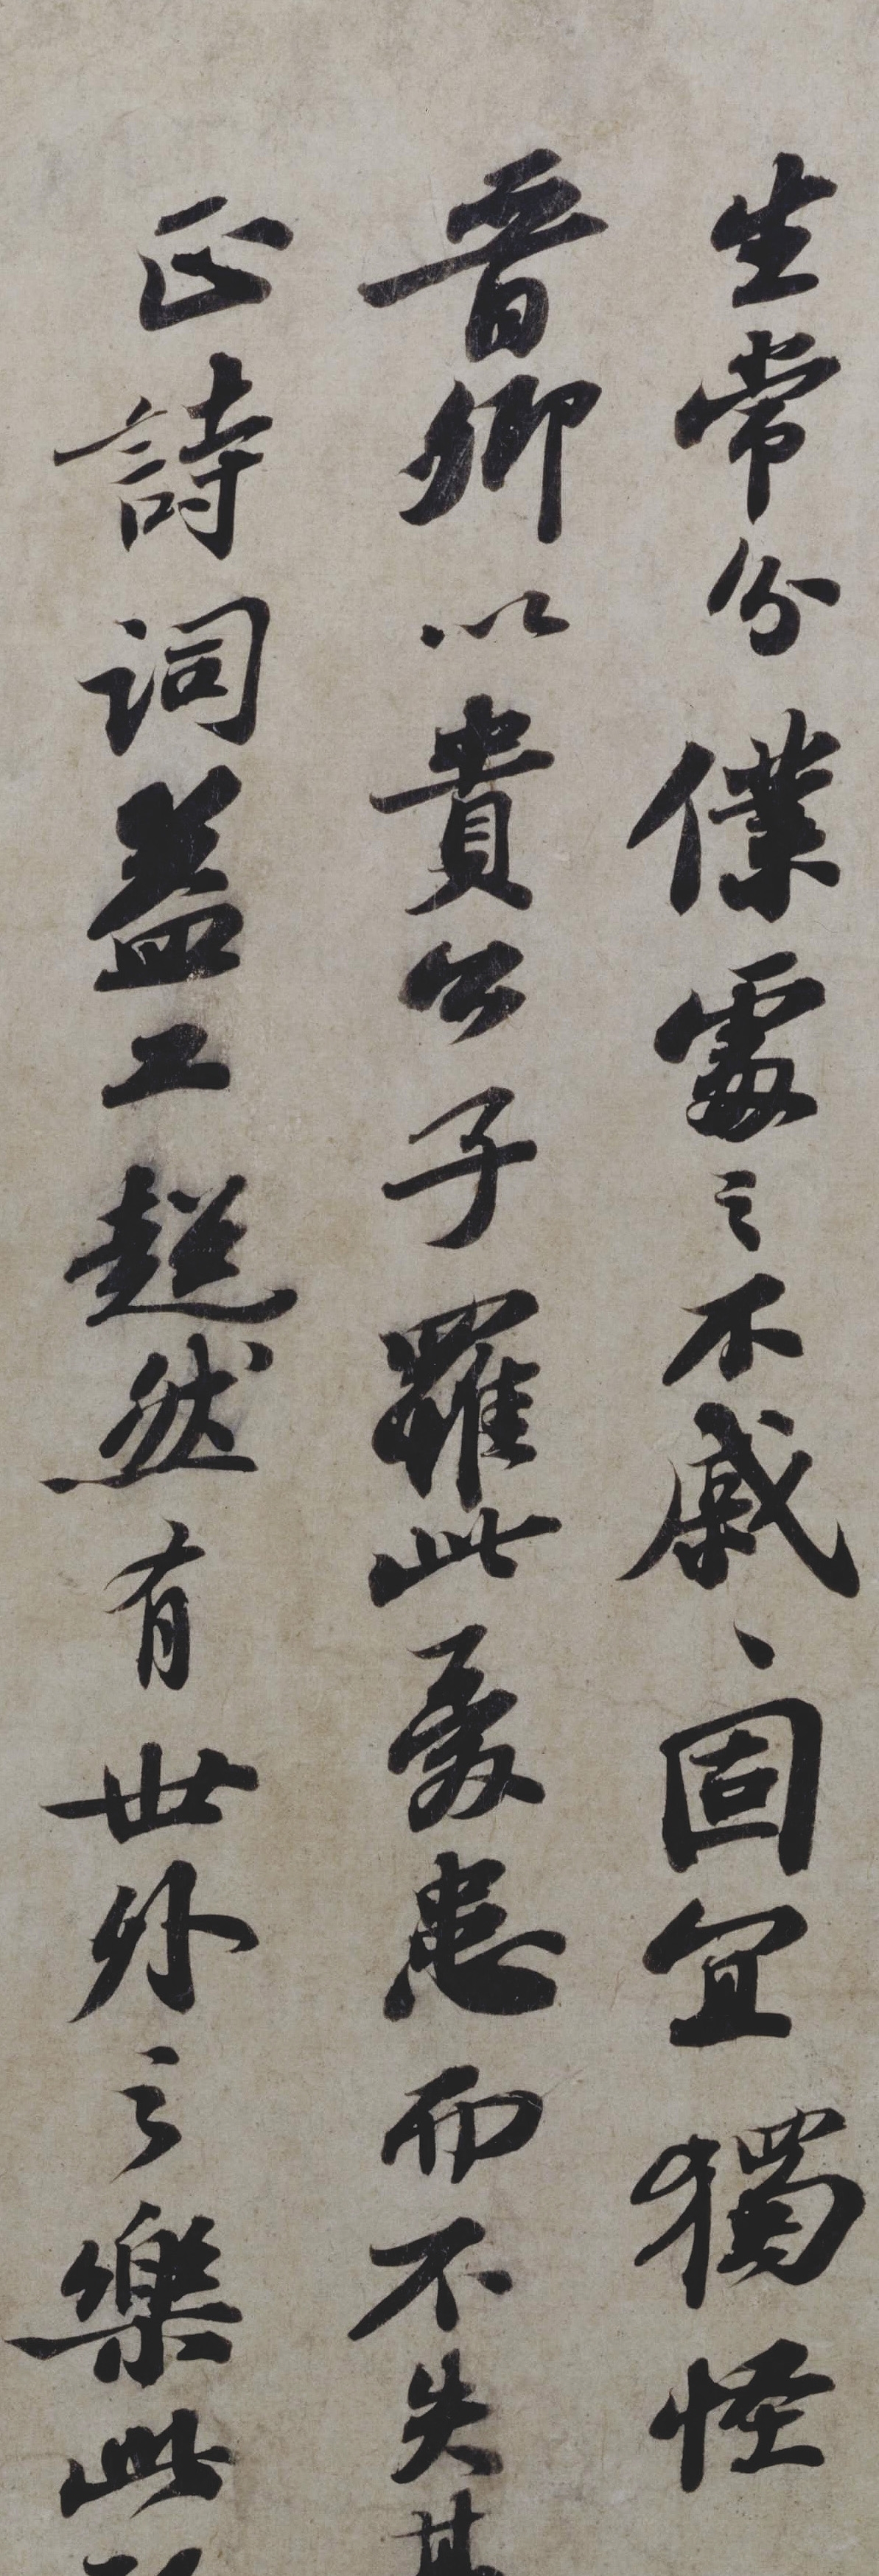 生常分僕處之不戚、固宜獨怪
晉卿以貴公子罹此憂患而不失其
正詩詞益工超然有世外之樂此